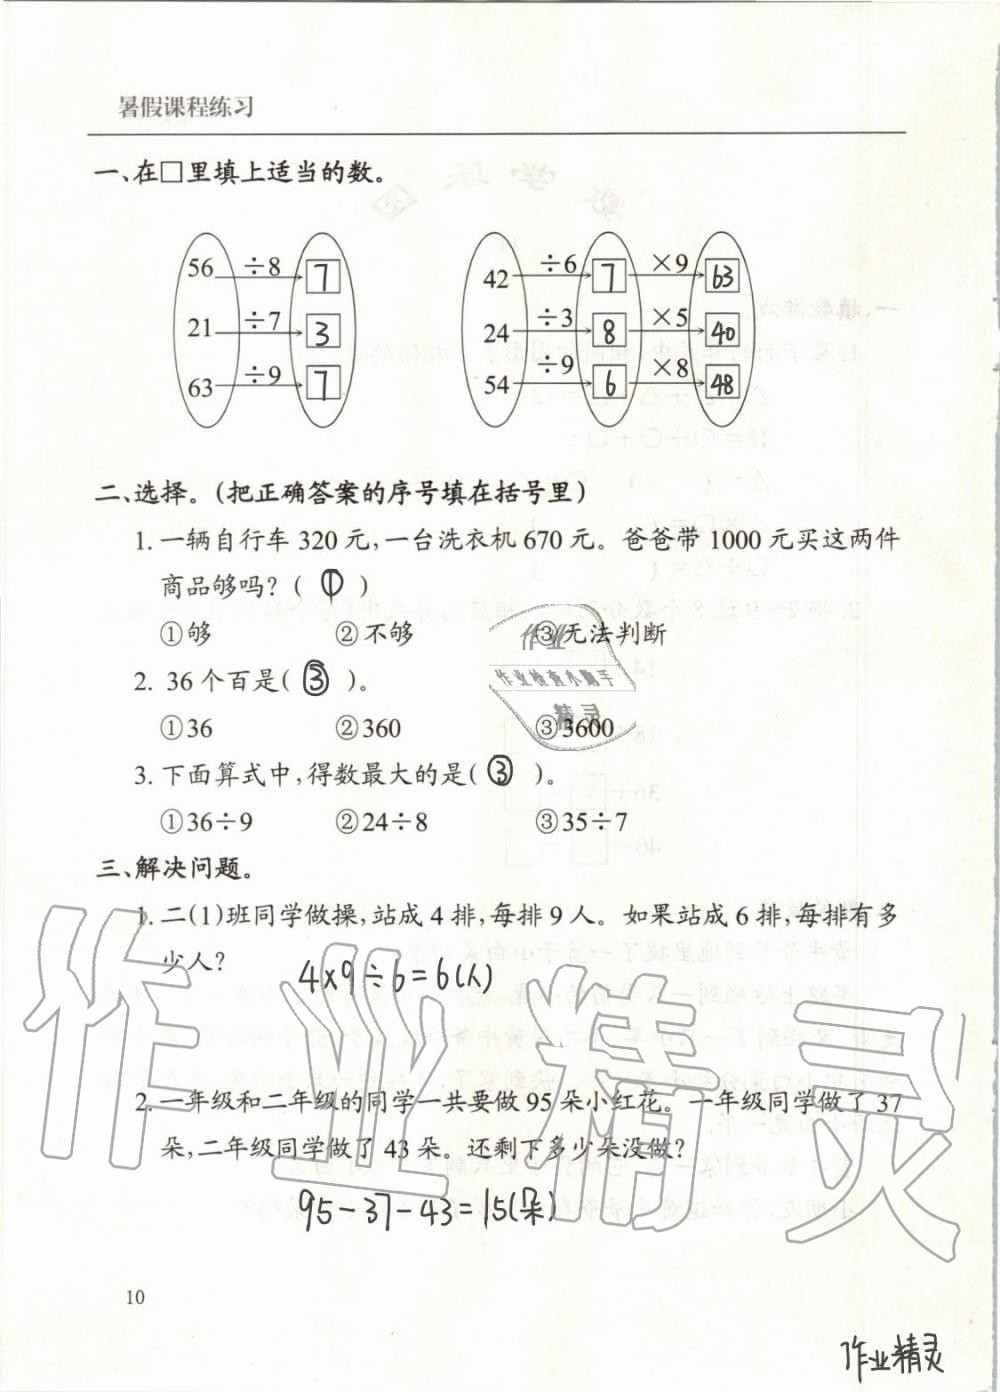 暑假课程练习
一、在□里填上适当的数。
56 ÷8 7
21 ÷7 3
63 ÷9 7
42 ÷6 7 ×9 63
24 ÷3 8 ×5 40
54 ÷9 6 ×8 48
二、选择。(把正确答案的序号填在括号里)
1. 一辆自行车 320 元,一台洗衣机 670 元。爸爸带 1000 元买这两件
商品够吗? ( ① )
①够 ②不够 ③无法判断
2. 36 个百是( ③ )。
①36 ②360 ③3600
3. 下面算式中,得数最大的是( ③ )。
①36÷9 ②24÷8 ③35÷7
三、解决问题。
1. 二(1)班同学做操,站成 4 排,每排 9 人。如果站成 6 排,每排有多
少人?
4×9÷6=6(人)
2. 一年级和二年级的同学一共要做 95 朵小红花。一年级同学做了 37
朵,二年级同学做了 43 朵。还剩下多少朵没做?
95-37-43=15(朵)
10
作业精灵
作业
作业检查小助手
精灵
作业精灵